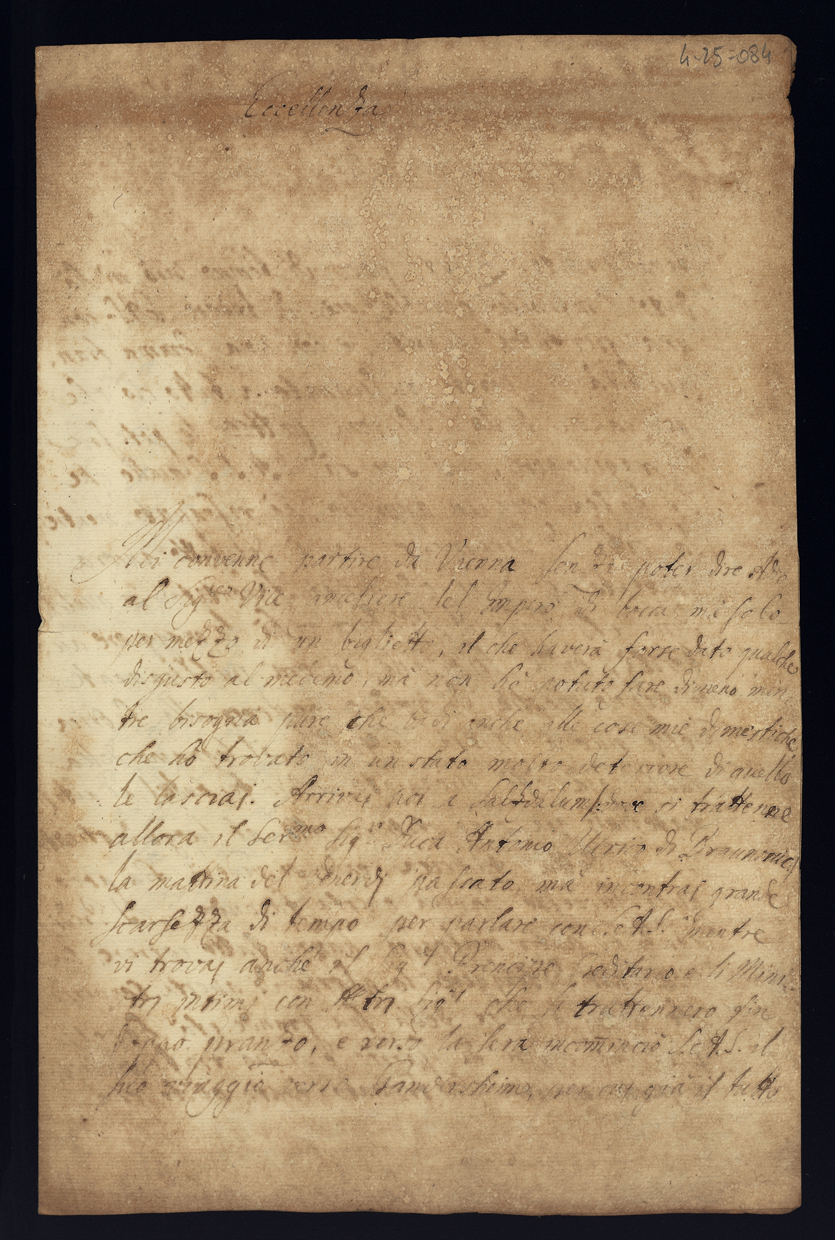 4-25-084
Eccellenza
Mi convenne partire da Vienna senza poter dire Adio
al Sigre Vice Cancelliere del Impero di bocca mà solo
per mezzo di un biglietto, il che haverà forse dato qualche
disgusto al medemo, mà non hò potuto fare dimeno men-
tre bisognia pure che badi anche alle cose mie dimestiche
che hò trovato in un stato molto deteriore di quello
le lasciai. Arrivaj quì e Saltzdalum, dove si trattenne
allora il Sermo Sigre Duca Antonio Ulrico di Braunsuic,
la mattina del Venerdj passato, mà incontraj grande
scarsezza di tempo per parlare con S.A.S. mentre
vi trovaj anche il Sigre Principe Ereditario e li Mini-
stri intimj con altri Sigri che si trattennero fin
dopo pranzo, e verso la sera incominciò S.A.S. il
suo viaggio verso Gandersheim, per cuj già il tutto